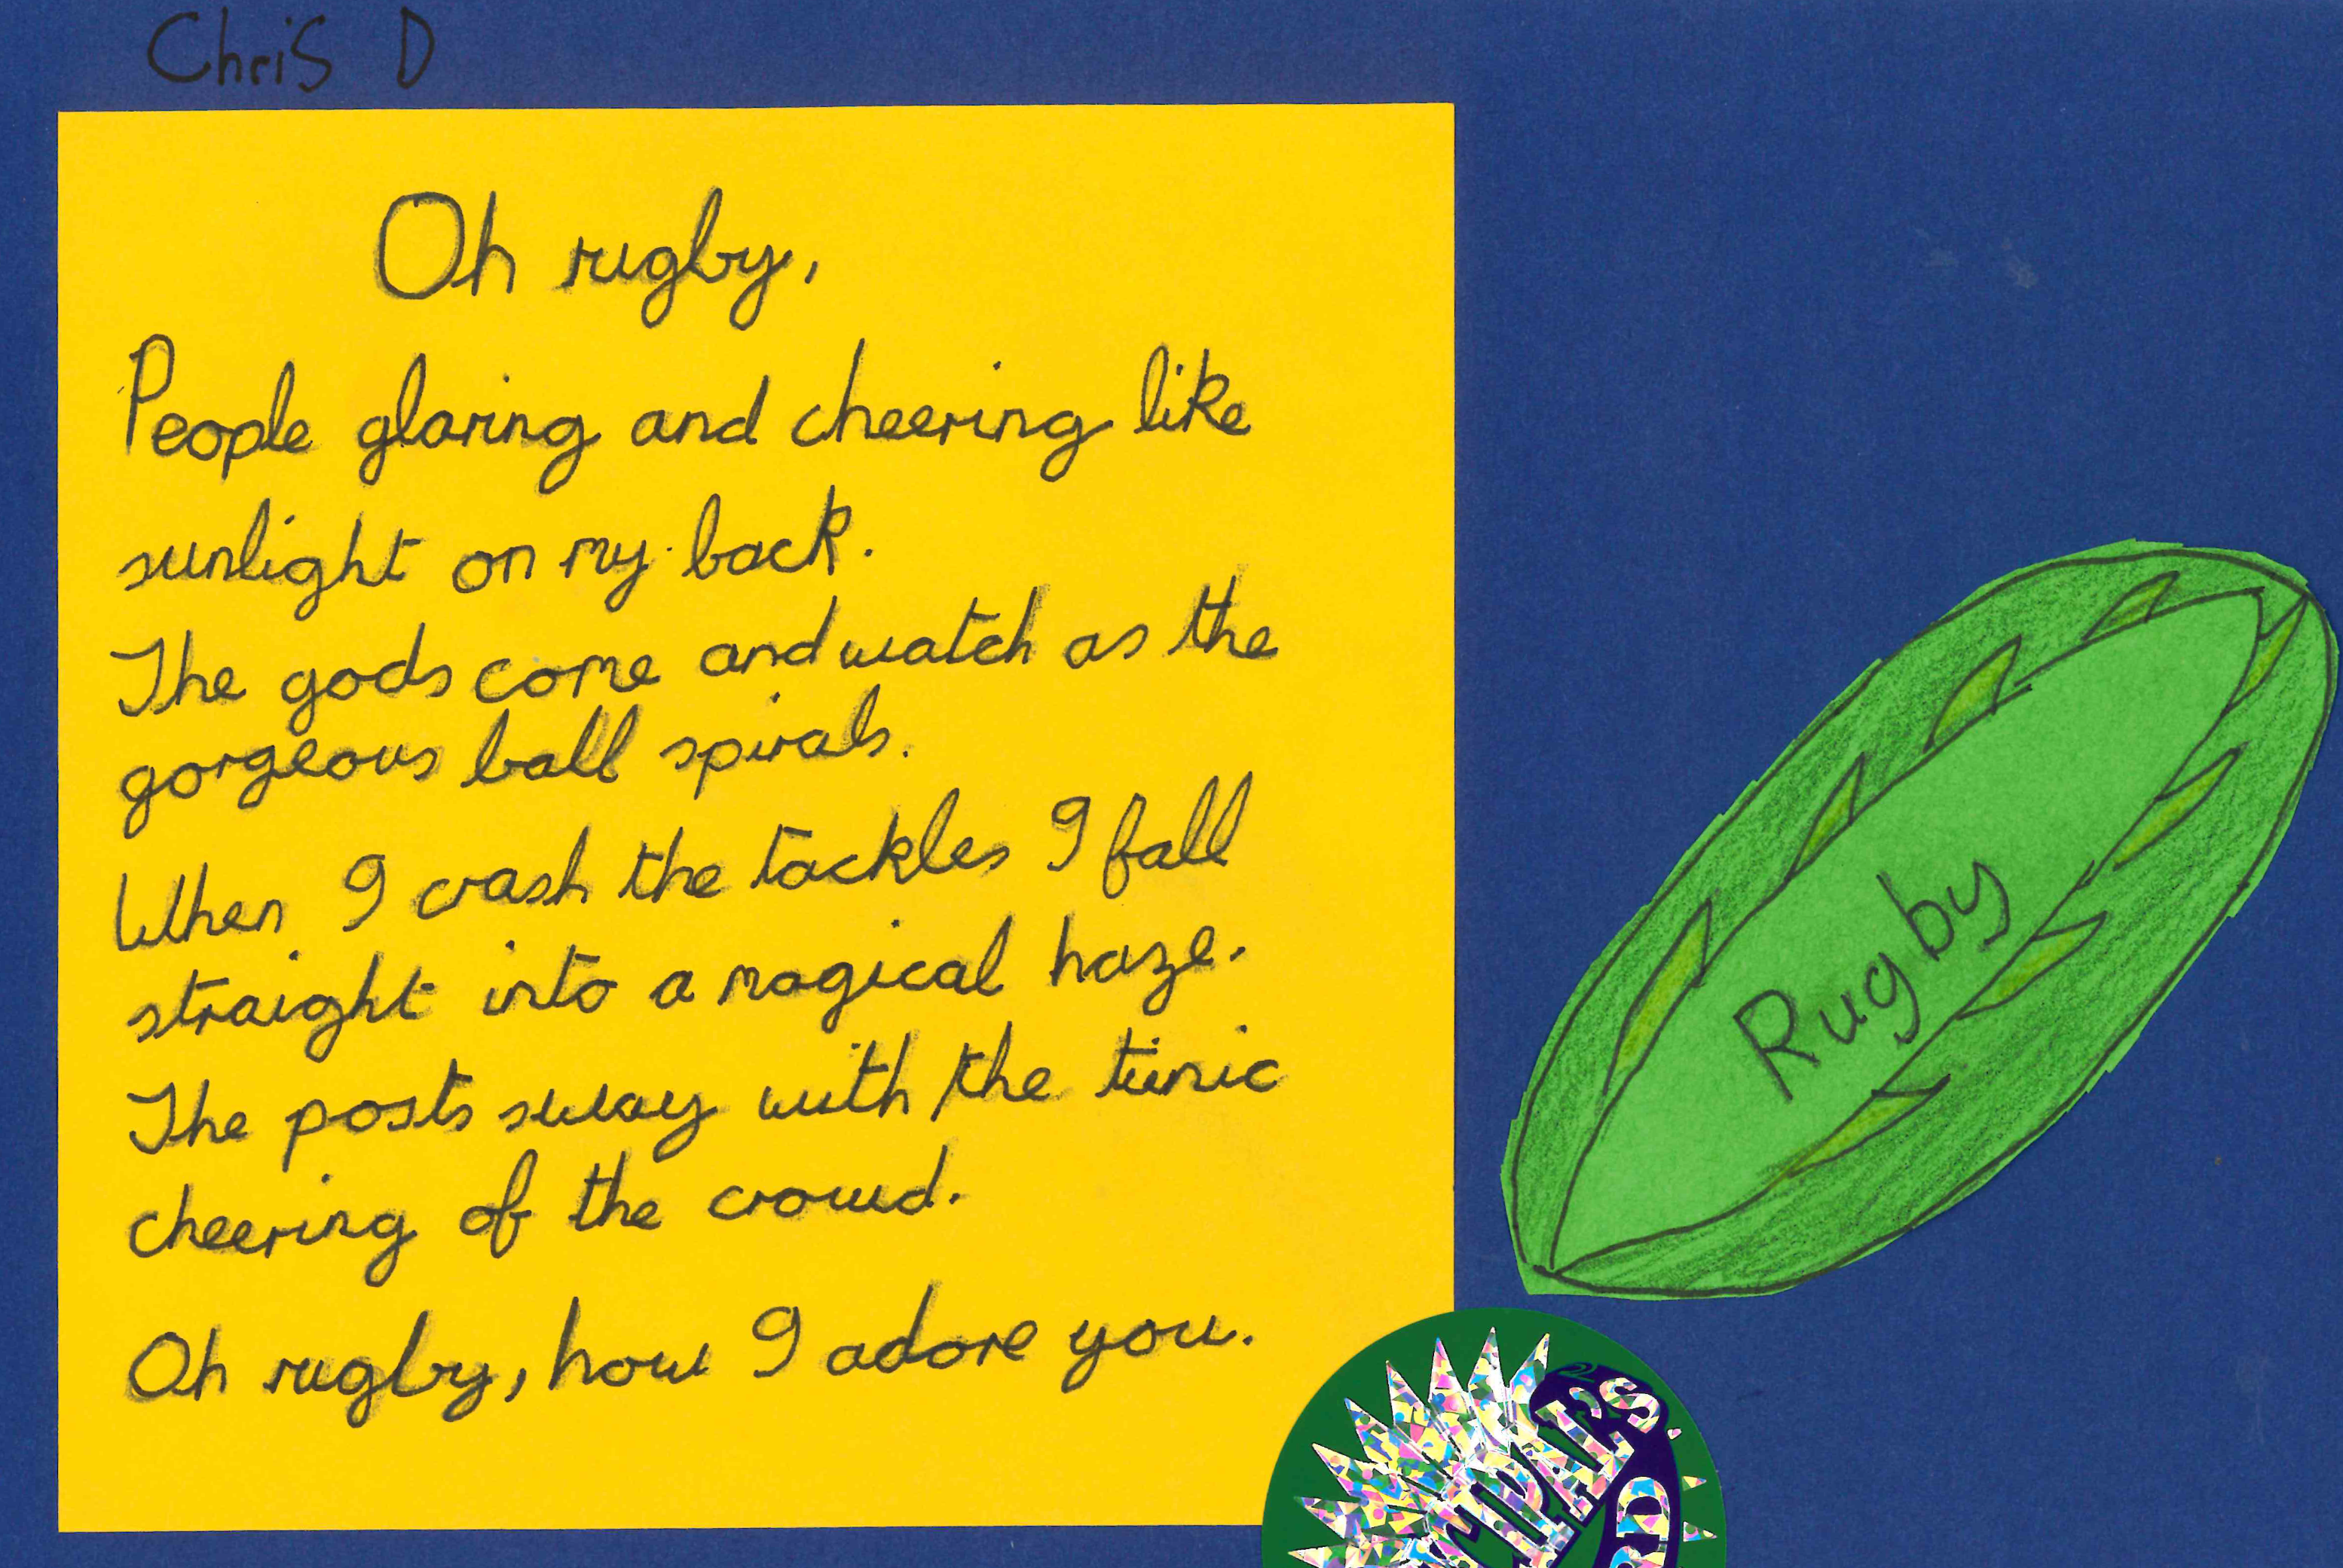 Chris D
Oh rugby,
People glaring and cheering like
sunlight on my back.
The gods come and watch as the
gorgeous ball spirals.
When I crash the tackles I fall
straight into a magical haze.
The posts sway with the tunic
cheering of the crowd.
Oh rugby, how I adore you.
Rugby